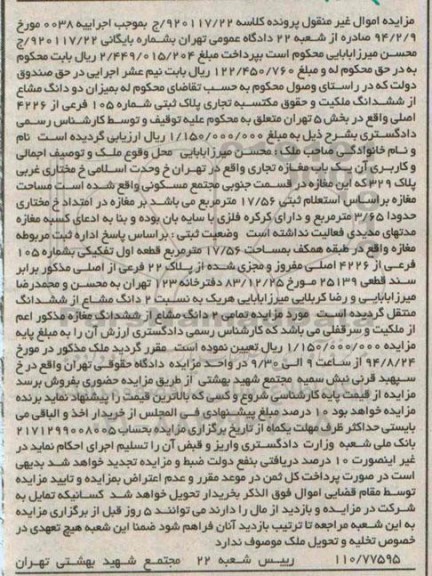 مزایده اموال غیر منقول پرونده کلاسه ۹۲۰۱۱۷/۲۲/ج بموجب اجراییه ۰۰۳۸ مورخ
۹۴/۲/۹ صادره از شعبه ۲۲ دادگاه عمومی تهران بشماره بایگانی ۹۲۰۱۱۷/۲۲/ج
محسن میرزابابایی محکوم است بپرداخت مبلغ ۲/۴۴۹/۰۱۵/۲۰۴ ریال بابت محکوم
به در حق محکوم له و مبلغ ۱۲۲/۴۵۰/۷۶۰ ریال بابت نیم عشر اجرایی در حق صندوق
دولت که در راستای وصول محکوم به حسب تقاضای محکوم له بمیزان دو دانگ مشاع
از ششدانگ ملکیت و حقوق مکتسبه تجاری پلاک ثبتی شماره ۱۰۵ فرعی از ۴۲۲۶
اصلی واقع در بخش ۵ تهران متعلق به محکوم علیه توقیف و توسط کارشناس رسمی
دادگستری بشرح ذیل به مبلغ ۱/۱۵۰/۰۰۰/۰۰۰ ریال ارزیابی گردیده است نام
و نام خانوادگی صاحب ملک: محسن میرزابابایی محل وقوع ملک و توصیف اجمالی
و کاربری آن یک باب مغازه تجاری واقع در تهران خ وحدت اسلامی خ مختاری غربی
پلاک ۳۲۹ که این مغازه در قسمت جنوبی مجتمع مسکونی واقع شده است مساحت
مغازه براساس استعلام ثبتی ۱۷/۵۶ مترمربع می باشد بر مغازه در امتداد خ مختاری
حدودا ۳/۶۵ مترمربع و دارای کرکره فلزی با سایه بان بوده و بنا به ادعای کسبه مغازه
مدتهای مدیدی فعالیت نداشته است وضعیت ثبتی: براساس پاسخ اداره ثبت مربوطه
مغازه واقع در طبقه همکف بمساحت ۱۷/۵۶ مترمربع قطعه اول تفکیکی بشماره ۱۰۵
فرعی از ۴۲۲۶ اصلی مفروز و مجزی شده از پلاک ۲۲ فرعی از اصلی مذکور برابر
سند قطعی ۲۵۱۳۹ مورخ ۸۳/۱۲/۲۵ دفترخانه ۱۲۳ تهران به محسن و محمدرضا
میرزابابایی و رضا کربلایی میرزابابایی هریک به نسبت ۲ دانگ مشاع از ششدانگ
منتقل گردیده است مورد مزایده تمامی ۲ دانگ مشاع از ششدانگ مغازه مذکور اعم
از ملکیت و سرقفلی می باشد که کارشناس رسمی دادگستری ارزش آن را به مبلغ پایه
مزایده ۱/۱۵۰/۰۰۰/۰۰۰ ریال تعیین نموده است مقرر گردید ملک مذکور در مورخ
۹۴/۸/۲۴ از ساعت ۹ الی ۹/۳۰ در واحد مزایده دادگاه حقوقی تهران واقع در خ
سپهبد قرنی نبش سمیه مجتمع شهید بهشتی از طریق مزایده حضوری بفروش برسد
مزایده از قیمت پایه کارشناسی شروع و کسی که بالاترین قیمت را پیشنهاد نماید برنده
مزایده خواهد بود ۱۰ درصد مبلغ پیشنهادی فی المجلس از خریدار اخذ و الباقی می
بایستی حداکثر ظرف مهلت یکماه از تاریخ برگزاری مزایده بحساب ۲۱۷۱۲۹۹۰۰۸۰۰۵
بانک ملی شعبه وزارت دادگستری واریز و قبض آن را تسلیم اجرای احکام نماید در
غیر اینصورت ۱۰ درصد دریافتی بنفع دولت ضبط و مزایده تجدید خواهد شد بدیهی
است در صورت پرداخت کل ثمن در موعد مقرر و عدم اعتراض بمزایده و تایید مزایده
توسط مقام قضایی اموال فوق الذکر بخریدار تحویل خواهد شد کسانیکه تمایل به
شرکت در مزایده و بازدید از مال را دارند می توانند ۵ روز قبل از برگزاری مزایده
به این شعبه مراجعه تا ترتیب بازدید آنان فراهم شود ضمنا این شعبه هیچ تعهدی در
خصوص تخلیه و تحویل ملک موصوف ندارد
۱۱۰/۷۷۵۹۵ رییس شعبه ۲۲ مجتمع شهید بهشتی تهران